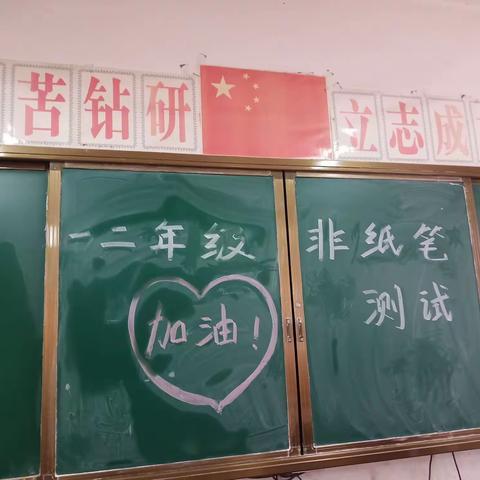 苦钻研
立志成
一二年级
加油！
非纸笔
测试